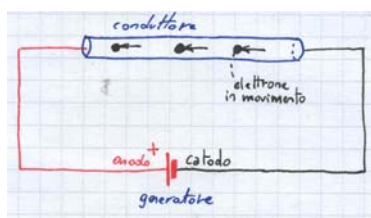 conduttore
elettrone
in movimento
anodo + catodo
generatore